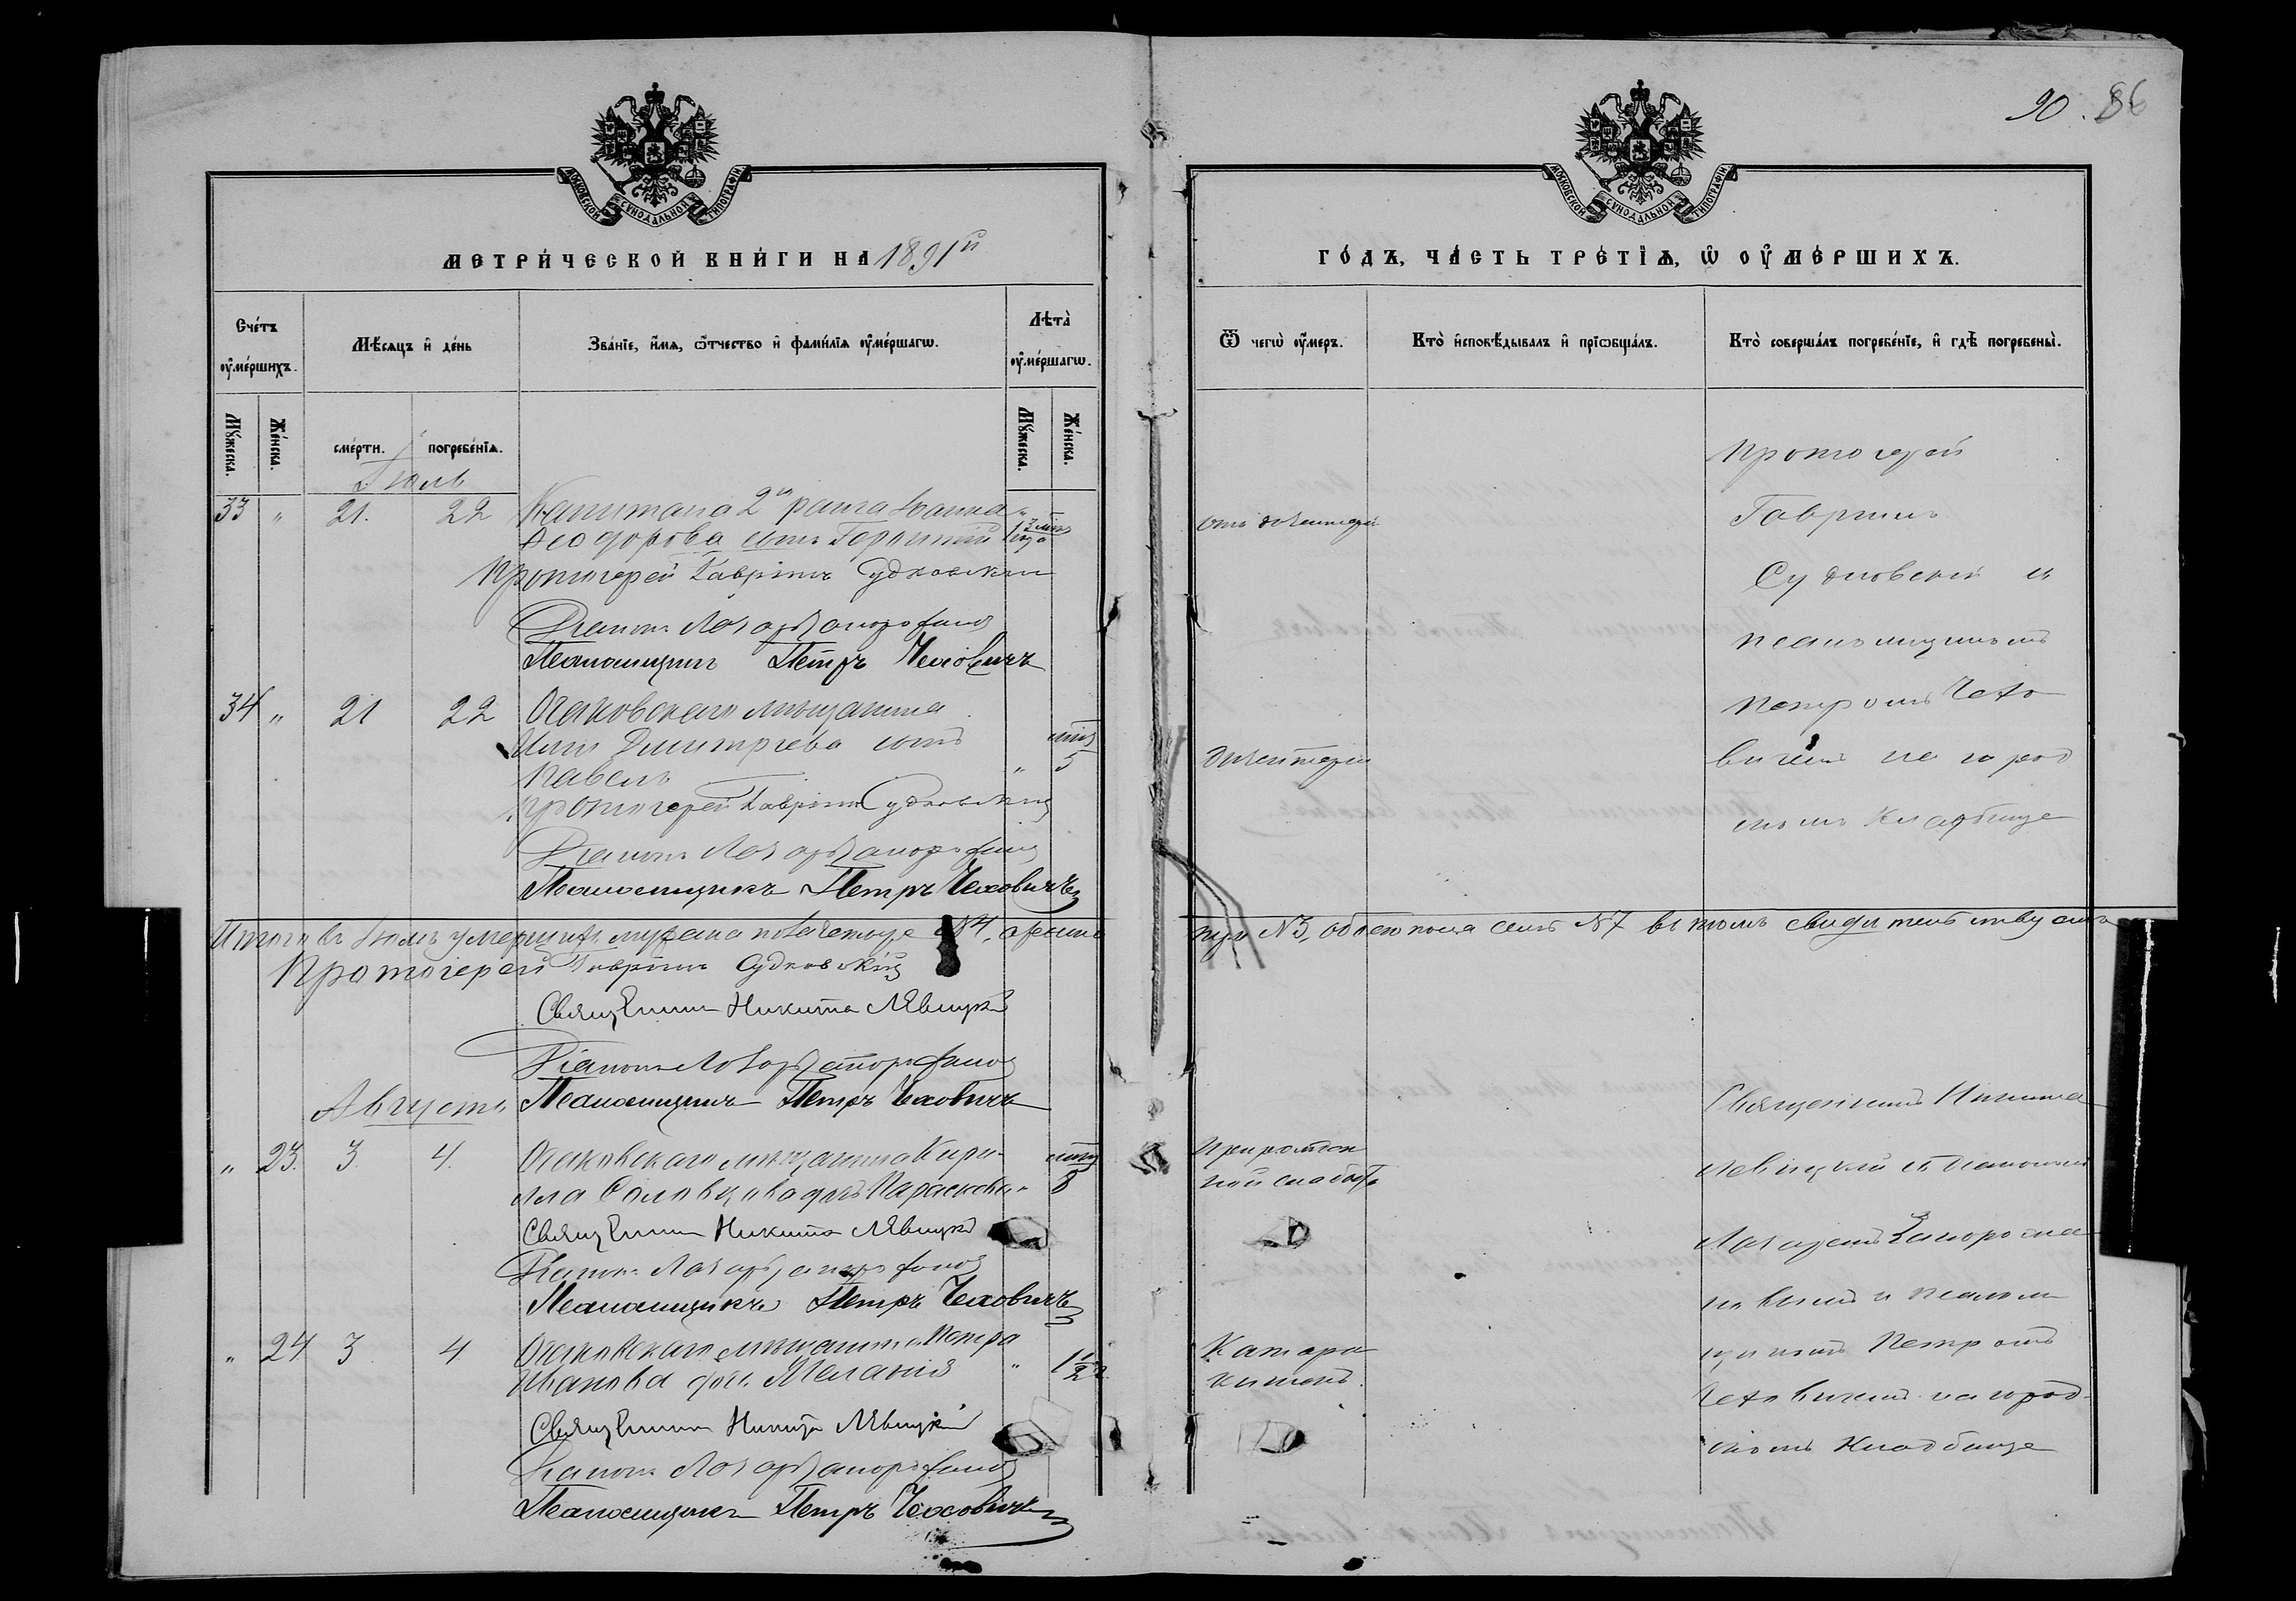 90. 86
МОСКОВСКОЙ СΥНОДАЛЬНОЙ ТИПОГРАФІИ
МОСКОВСКОЙ СΥНОДАЛЬНОЙ ТИПОГРАФІИ
МЕТРИ́ЧЕСКОЙ КНИ́ГИ НА 1891й
ГО́ДЪ, ЧА́СТЬ ТРЕ́ТІѦ, Ѡ҆ ОУ҆МЕ́РШИХЪ.
Сче́тъ оу҆ме́ршихъ.
Мѣ́сѧцъ и҆ де́нь
Зва́нїе, и҆́мѧ, ѻ҆́тчество и҆ фами́лїѧ оу҆ме́ршагѡ.
Лѣта̀ оу҆ме́ршагѡ.
Ѿ чегѡ̀ оу҆́меръ.
Кто̀ и҆сповѣ́дывалъ и҆ прїѡбща́лъ.
Кто̀ соверша́лъ погребе́нїе, и҆ гдѣ̀ погребены̀.
Мꙋ́жеска.
Же́нска.
сме́рти.
погребе́нїѧ.
Мꙋ́жеска.
Же́нска.
Іюль
33 " 21. 22 Капитана 2го ранга Іоанна
Ѳеодорова сынъ
1 года 3 мѣс
отъ дизентеріи
Протоіерей Гавріилъ Судковскій
Діаконъ Лазарь Запорожановъ
Псаломщикъ Петръ Чеховичъ
Протоіерей
Гавріилъ
Судковскій съ
псаломщикомъ
Петромъ Чехо
вичемъ на город
скомъ кладбище
34 " 21 22 Очаковскаго мѣщанина
Димитріева сынъ
Павелъ " 5
дизентеріи
Протоіерей Гавріилъ Судковскій
Діаконъ Лазарь Запорожановъ
Псаломщикъ Петръ Чеховичъ
Итого въ Іюлѣ умершихъ мужеска пола четыре №4, а женска
три №3, обоего пола семь №7 въ томъ свидѣтельствуемъ
Протоіерей Гавріилъ Судковскій
Священникъ Никита Лѣвицкій
Діаконъ Лазарь Запорожановъ
Псаломщикъ Петръ Чеховичъ
Августъ
" 23. 3. 4. Очаковскаго мѣщанина Кири-
лла дочь Параскева " 8
При родон
ной слабости
Священникъ Никита Лѣвицкій
Діаконъ Лазарь Запорожановъ
Псаломщикъ Петръ Чеховичъ
Священникъ Никита
Левицкій съ діакономъ
Лазаремъ Запорожа
новымъ и псалом
щикомъ Петромъ
Чеховичемъ на город-
скомъ кладбище
" 24 3 4 Очаковскаго мѣщанина Петра
Иванова дочь Меланія " 1 1/2 г.
Священникъ Никита Лѣвицкій
Діаконъ Лазарь Запорожановъ
Псаломщикъ Петръ Чеховичъ